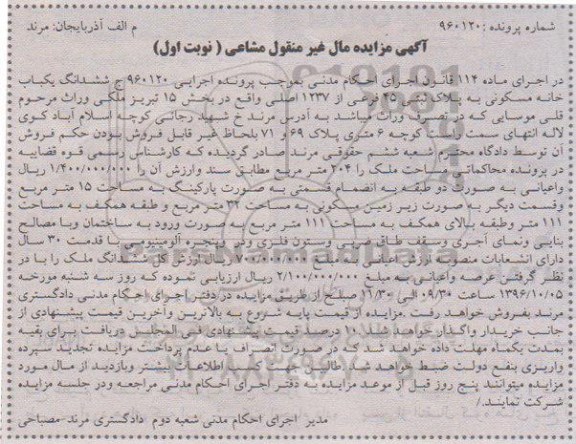 شماره پرونده : ۹۶۰۱۲۰ م الف آذربایجان: مرند
آگهی مزایده مال غیر منقول مشاعی ( نوبت اول)
در اجرای ماده ۱۱۴ قانون اجرای احکام مدنی بموجب پرونده اجرایی ۹۶۰۱۲۰ ج ششدانگ یکباب
خانه مسکونی به پلاک ثبتی ۲۵ فرعی از ۱۲۳۷ اصلی واقع در بخش ۱۵ تبریز ملکی وراث مرحوم
قلی موسایی که در تصرف وراث میباشد به آدرس مرند خ شهید رجائی کوچه اسلام آباد کوی
لاله انتهای سمت راست کوچه ۶ متری پلاک ۶۹ و ۷۱ بلحاظ غیر قابل فروش بودن حکم فروش
آن توسط دادگاه محترم شعبه ششم حقوقی مرند صادر گردیده که کارشناس رسمی قوه قضاییه
در پرونده محاکماتی مساحت ملک را ۲۰۴ متر مربع مطابق سند وارزش آن را ۱/۴۰۰/۰۰۰/۰۰۰ ریال
واعیانی به صورت دو طبقه به انضمام قسمتی به صورت پارکینگ به مساحت ۱۵ متر مربع
وقسمت دیگر به صورت زیر زمین مسکونی به مساحت ۳۲ متر مربع و طبقه همکف به مساحت
۱۱۱ متر وطبقه بالای همکف به مساحت ۱۱۱ متر مربع به صورت ورود به ساختمان وبا مصالح
بنایی ونمای آجری وسقف طاق ضربی وستون فلزی ودر وپنجره آلومینیوم با قدمت ۳۰ سال
دارای انشعابات منصوبه وارزش اعیانی به مبلغ ریال وارزش کل ششدانگ ملک را با در
نظر گرفتن عرصه واعیانی به مبلغ ۲/۱۰۰/۰۰۰/۰۰۰ ریال ارزیابی نموده که روز سه شنبه مورخه
۱۳۹۶/۱۰/۰۵ ساعت ۰۹/۳۰ الی ۱۱/۳۰ صبح از طریق مزایده در دفتر اجرای احکام مدنی دادگستری
مرند بفروش خواهد رفت .مزایده از قیمت پایه شروع به بالاترین وآخرین قیمت پیشنهادی از
جانب خریدار واگذار خواهد شد. ۱۰ درصد قیمت پیشنهادی فی المجلس دریافت برای بقیه
بمدت یکماه مهلت داده خواهد شد که در صورت انصراف یا عدم پرداخت مزایده تجدید سپرده
واریزی بنفع دولت ضبط خواهد شد طالبین اطلاعات بیشتر وبازدید از مال مورد
مزایده میتوانند پنج روز قبل از موعد مزایده به دفتر اجرای احکام مدنی مراجعه ودر جلسه مزایده
شرکت نمایند./
مدیر اجرای احکام مدنی شعبه دوم دادگستری مرند-مصباحی